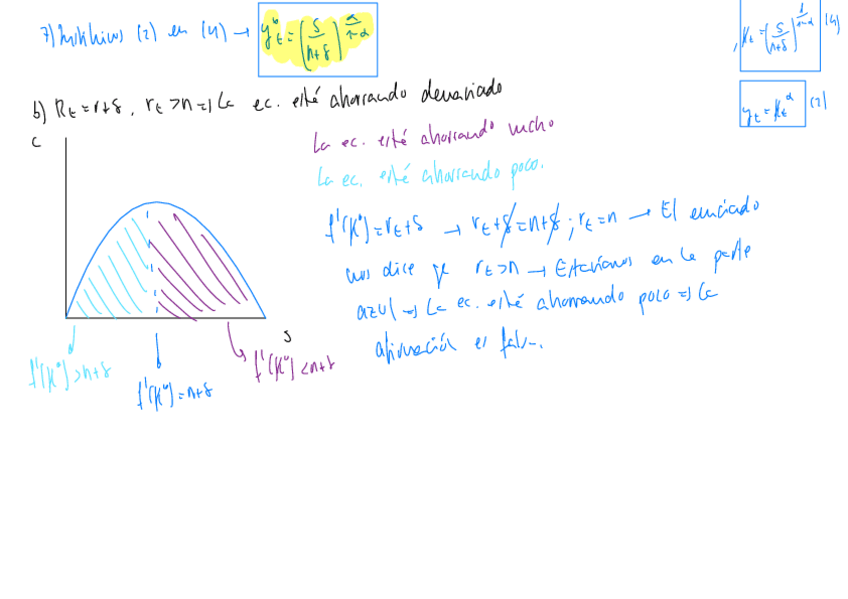 7) Sustituimos (2) en (4) → y*t = (s/n+δ)^α/1-α
, Kt = (s/n+δ)^1/1-α (4)
yt = Kt^α (2)
b) Rt = r+δ, rt > n => La ec. está ahorrando demasiado
C
La ec. está ahorrando mucho
La ec. está ahorrando poco.
f'(K*) = rt+δ → rt+δ = n+δ ; rt = n → El enunciado
nos dice qe rt > n → Estaríamos en la parte
azul => La ec. está ahorrando poco => La
afirmación es falsa.
s
f'(K*) > n+δ
f'(K*) = n+δ
f'(K*) < n+δ